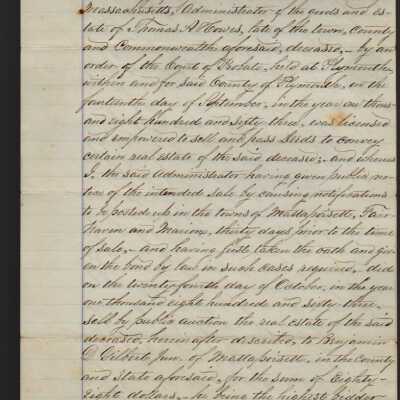 Massachusetts, Administrator of the goods and es-
tate of Thomas A Howes, late of the town, County
and Commonwealth aforesaid, deceased,- by an
order of the Court of Probate, held at Plymouth
within and for said County of Plymouth, on the
fourteenth day of September, in the year one thous-
and eight hundred and sixty three, was licensed
and empowered to sell and pass deeds to convey
certain real estate of the said deceased; and whereas
I, the said Administrator having given public no-
tice of the intended sale by causing notifications
to be posted up in the towns of Mattapoisett, Fair-
haven and Marion, thirty days prior to the time
of sale,- and having first taken the oath and giv-
en the bond by law in such cases required, did
on the twenty fourth day of October, in the year
one thousand eight hundred and sixty three
sell by public auction the real estate of the said
deceased, herein after described, to Benjamin
D Gilbert, Jun. of Mattapoisett, in the County
and State aforesaid, for the sum of Eighty-
eight dollars,- he being the highest bidder